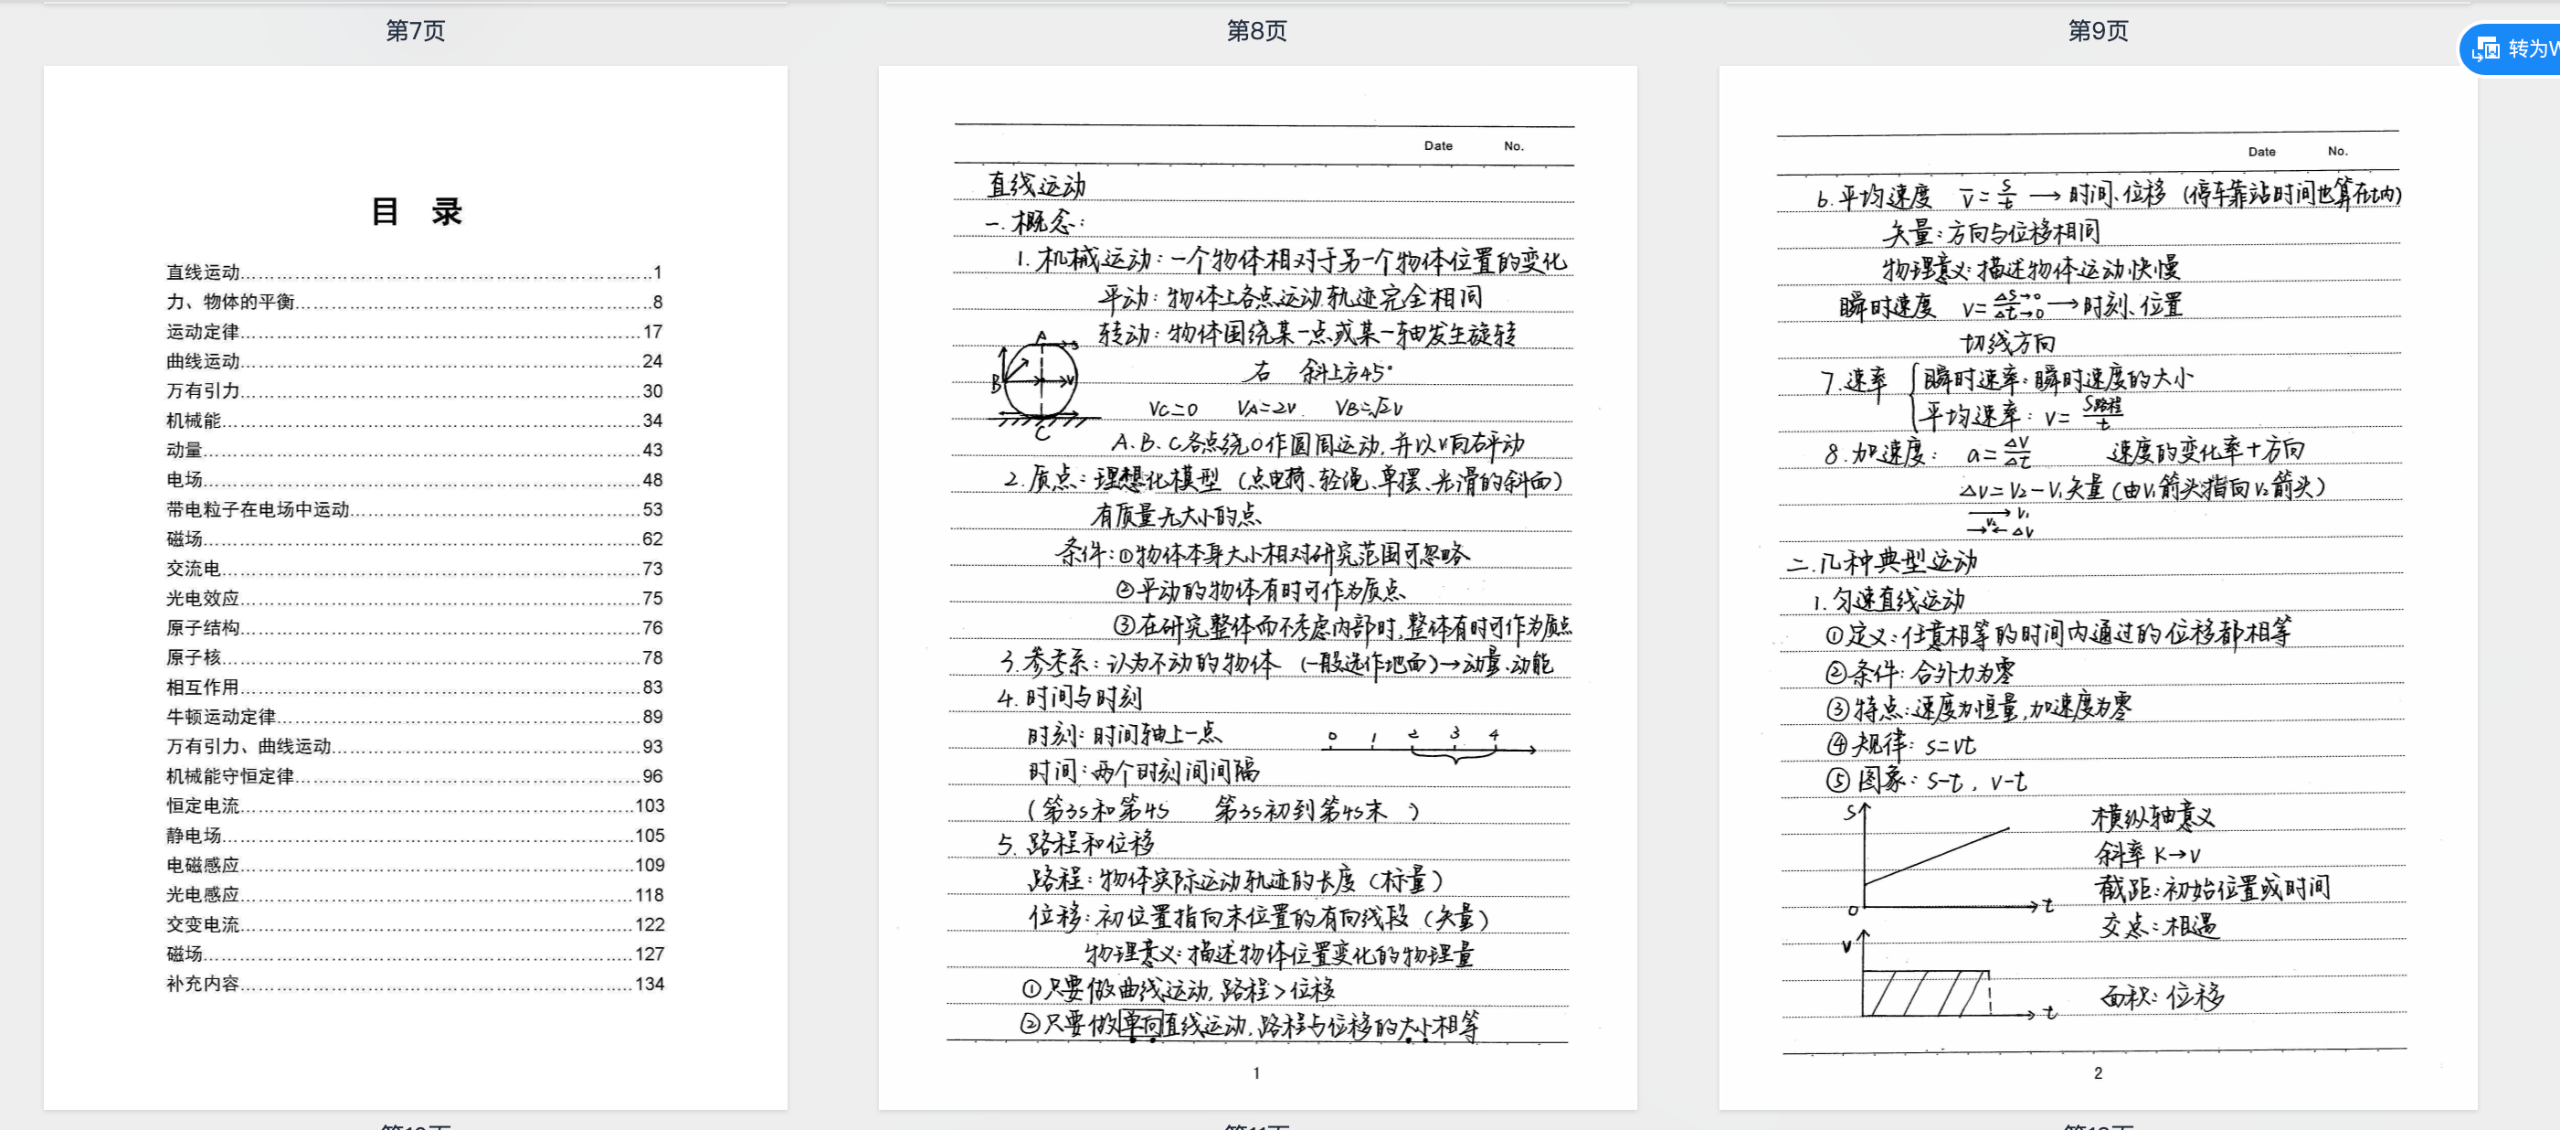 第7页
第8页
第9页
转为W
目 录
直线运动……1
力、物体的平衡……8
运动定律……17
曲线运动……24
万有引力……30
机械能……34
动量……43
电场……48
带电粒子在电场中运动……53
磁场……62
交流电……73
光电效应……75
原子结构……76
原子核……78
相互作用……83
牛顿运动定律……89
万有引力、曲线运动……93
机械能守恒定律……96
恒定电流……103
静电场……105
电磁感应……109
光电感应……118
交变电流……122
磁场……127
补充内容……134
Date No.
直线运动
一.概念:
1.机械运动:一个物体相对于另一个物体位置的变化
平动:物体上各点运动轨迹完全相同
转动:物体围绕某一点或某一轴发生旋转
A
B
V
C
右 斜上方45°
Vc=0 VA=2V VB=√2V
A.B.C各点绕O作圆周运动,并以V向右平动
2.质点:理想化模型(点电荷、轻绳、单摆、光滑的斜面)
有质量无大小的点
条件:①物体本身大小相对研究范围可忽略
②平动的物体有时可作为质点
③在研究整体而不考虑内部时,整体有时可作为质点
3.参考系:认为不动的物体 (一般选作地面)→动量.动能
4.时间与时刻
时刻:时间轴上一点
0 1 2 3 4
时间:两个时刻间间隔
(第3s和第4s 第3s初到第4s末 )
5.路程和位移
路程:物体实际运动轨迹的长度(标量)
位移:初位置指向末位置的有向线段(矢量)
物理意义:描述物体位置变化的物理量
①只要做曲线运动,路程>位移
②只要做单向直线运动,路程与位移的大小相等
1
Date No.
6.平均速度 v̄=s/t → 时间、位移 (停车靠站时间也算在t内)
矢量:方向与位移相同
物理意义:描述物体运动快慢
瞬时速度 v=Δs→0/Δt→0 → 时刻、位置
切线方向
7.速率 瞬时速率:瞬时速度的大小
平均速率: v=S路程/t
8.加速度: a=ΔV/Δt 速度的变化率+方向
ΔV=V2-V1矢量(由V1箭头指向V2箭头)
V1
V2 ΔV
二.几种典型运动
1.匀速直线运动
①定义:任意相等的时间内通过的位移都相等
②条件:合外力为零
③特点:速度为恒量,加速度为零
④规律: s=vt
⑤图象: s-t, v-t
S
O
t
横纵轴意义
斜率 K→V
截距:初始位置或时间
交点:相遇
V
t
面积:位移
2